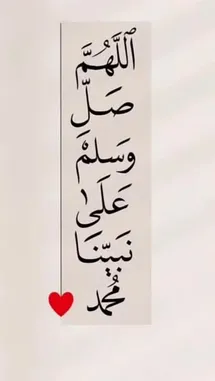 ٱللَّهُمَّ
صَلِّ
وَسَلِّمْ
عَلَىٰ
نَبِيِّنَا
مُحَمَّد